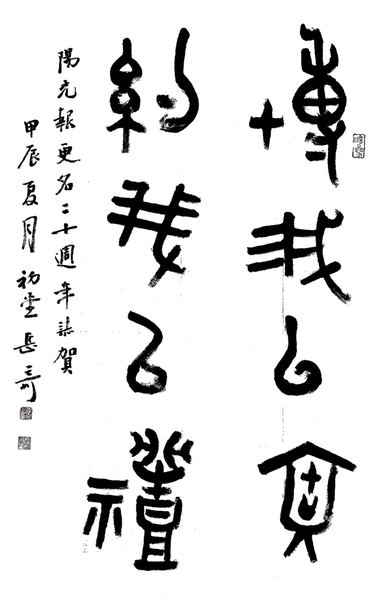 博我以文
約我以禮
陽光報更名二十週年誌賀
甲辰夏月初堂